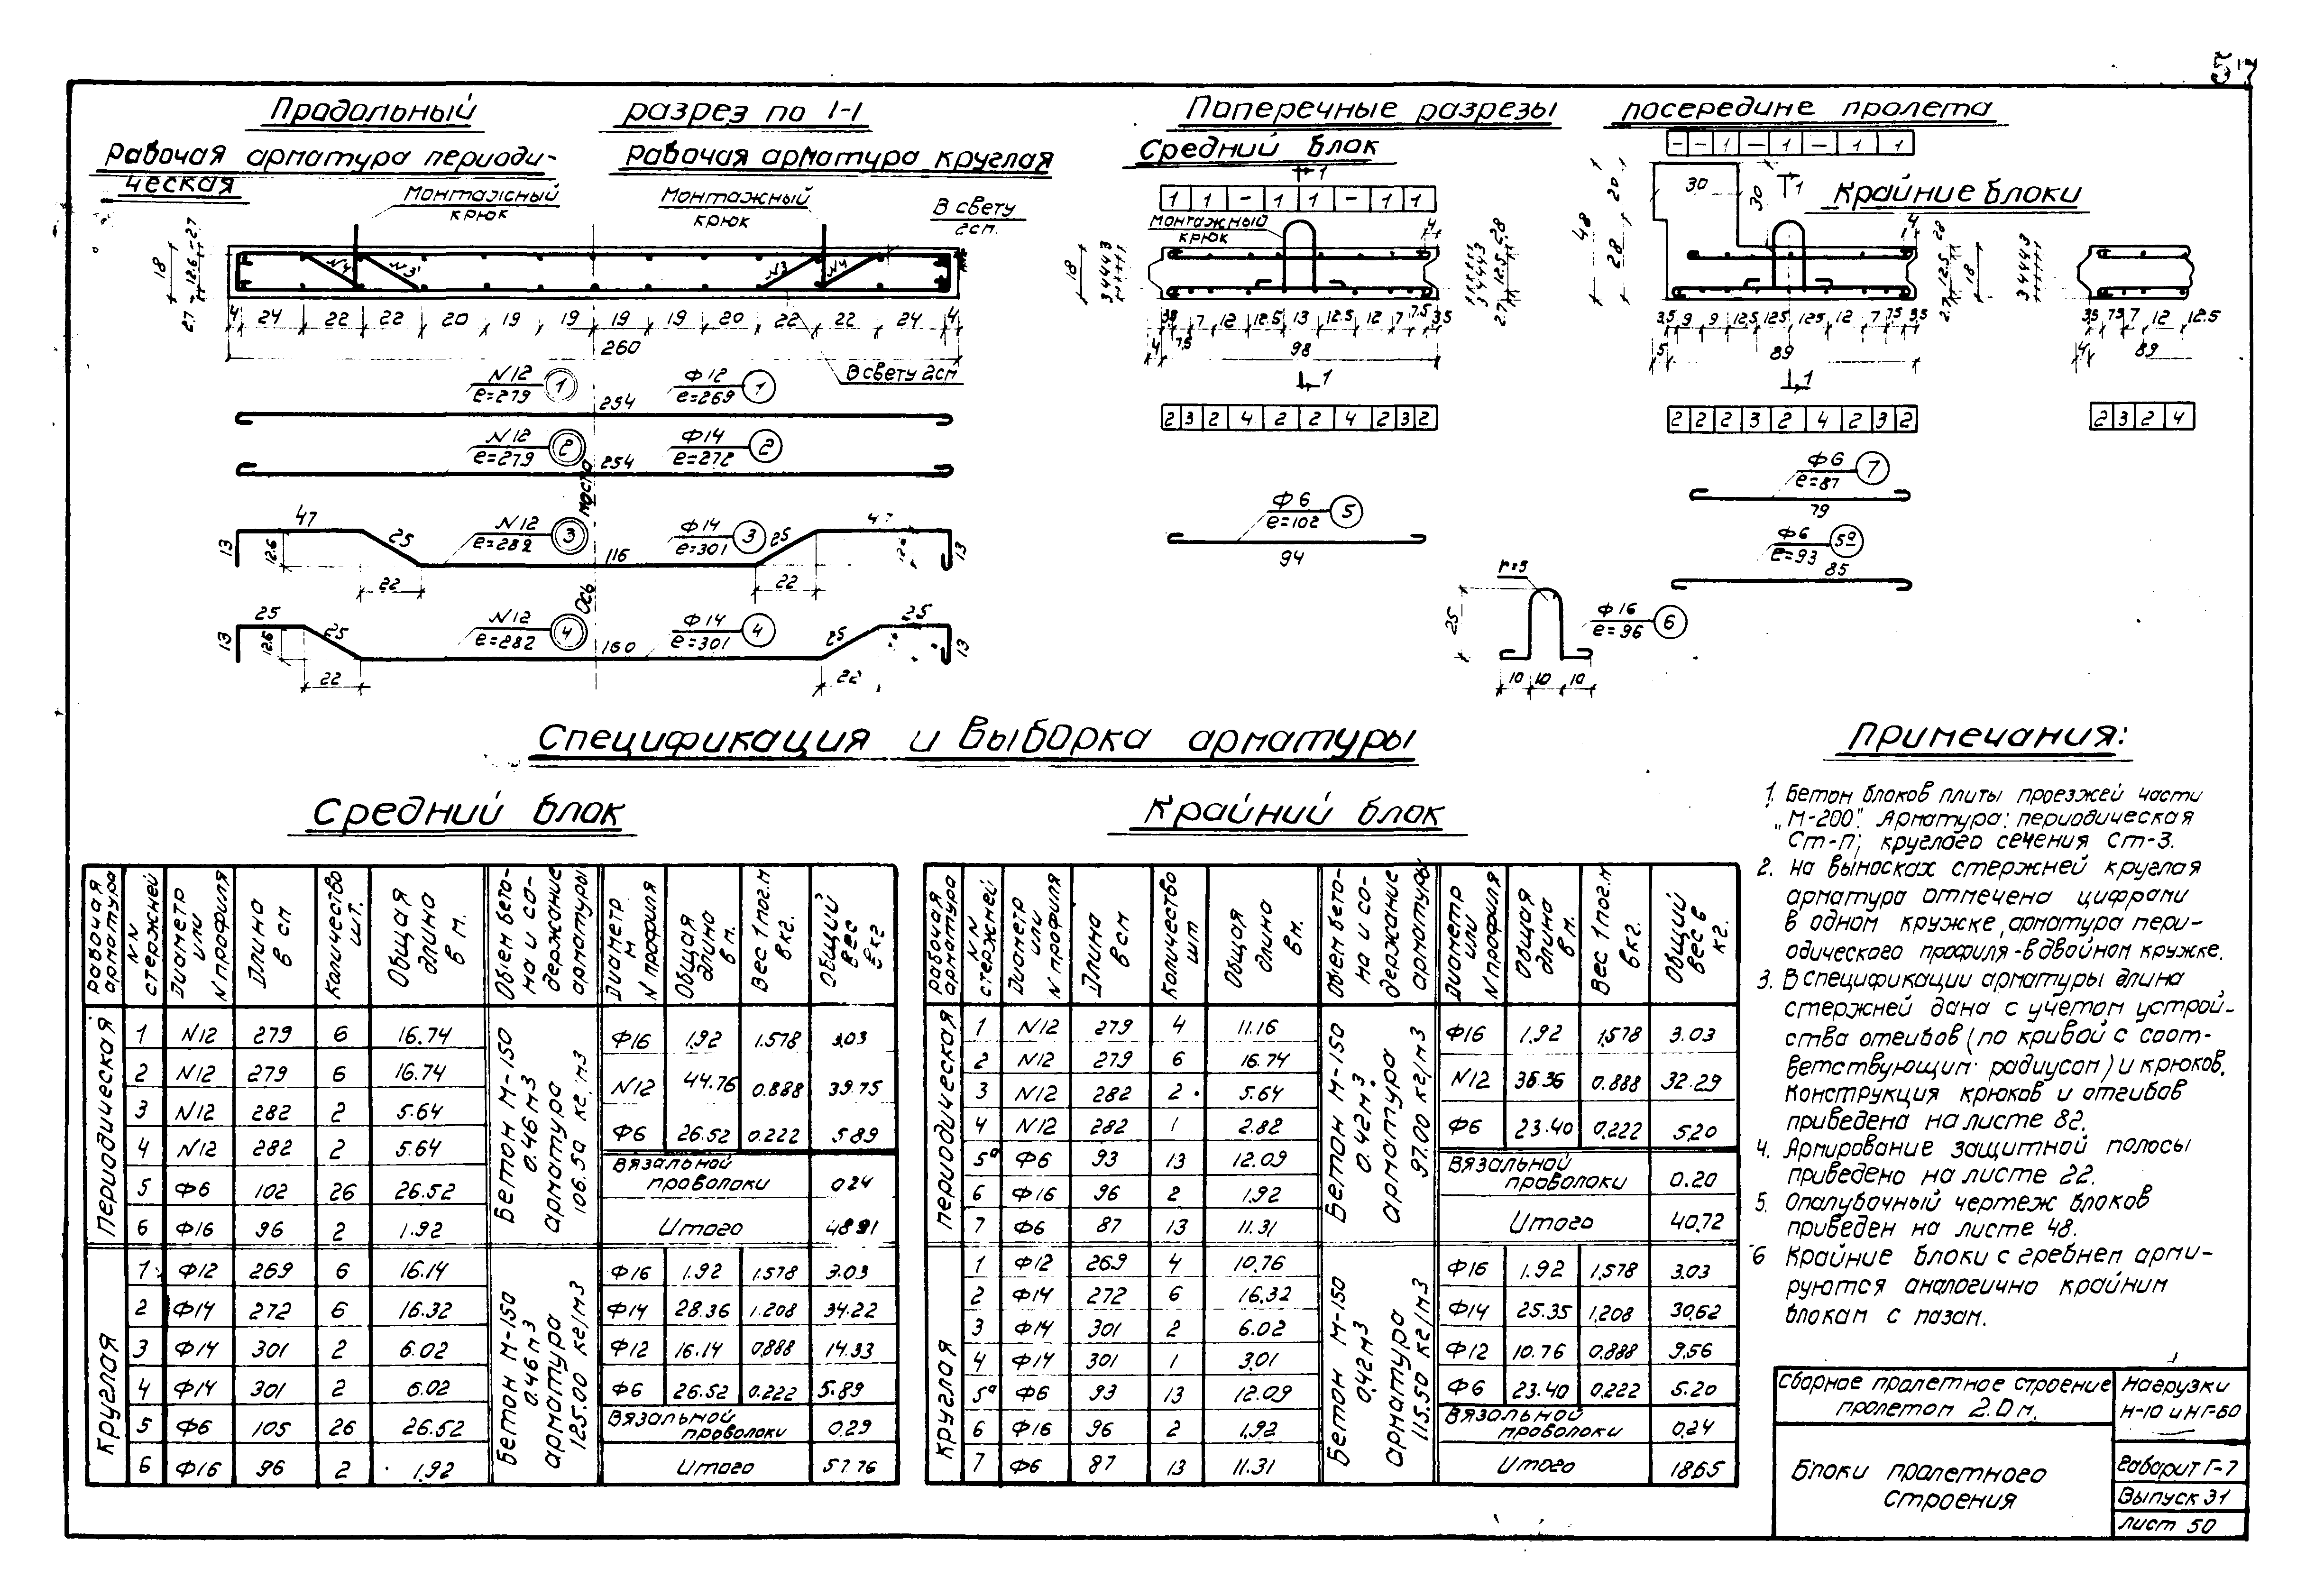 57
Продольный разрез по 1-1
Рабочая арматура периоди-
ческая
Рабочая арматура круглая
Монтажный
крюк
Монтажный
крюк
В свету
2см.
18
27 12.6 2.7
N4 N3 N3 N4
4 24 22 22 20 19 19 19 19 20 22 22 24 4
260
В свету 2см
N12 1 Ф12 1
e=279 254 e=269
N12 2 Ф14 2
e=279 254 e=272
моста
47 N12 3 Ф14 3 47
13 12.6 25 e=282 116 e=301 25 13
22 22
Ось
25 N12 4 Ф14 4 25
13 12.6 25 e=282 160 e=301 25 13
22 22
Поперечные разрезы посередине пролета
Средний блок
1
1 1 - 1 1 - 1 1
Монтажный
крюк
4
18 3 4 4 4 3
3 4 4 4 3
2.7 12.5 28
3.5 7 12 12.5 13 12.5 12 7 7.5 3.5
4 7.5 98
1
2 3 2 4 2 2 4 2 3 2
Ф6 5
e=102
94
- - 1 - 1 - 1 1
30 30 1
48 20 28
Крайние блоки
4
2.7 12.5 28
18
3.5 9 9 12.5 12.5 12.5 12 7 7.5 3.5
5 89
1
2 2 2 3 2 4 2 3 2
3 4 4 4 3
3.5 7.5 7 12 12.5
4 89
2 3 2 4
Ф6 7
e=87
79
Ф6 5а
e=93
85
r=5
25
Ф16 6
e=96
10 10 10
Спецификация и выборка арматуры
Средний блок
Рабочая арматура | NN стержней | Диаметр или N профиля | Длина в см | Количество шт. | Общая длина в м. | Объем бетона и содержание арматуры | Диаметр м N профиля | Общая длина в м. | Вес 1 пог.м в кг. | Общий вес в кг
Периодическая
1 N12 279 6 16.74
2 N12 279 6 16.74
3 N12 282 2 5.64
4 N12 282 2 5.64
5 Ф6 102 26 26.52
6 Ф16 96 2 1.92
Бетон М-150
0.46 м3
арматура
106.50 кг/м3
Ф16 1.92 1.578 3.03
N12 44.76 0.888 39.75
Ф6 26.52 0.222 5.89
Вязальной
проволоки 0.24
Итого 48.91
Круглая
1 Ф12 269 6 16.14
2 Ф14 272 6 16.32
3 Ф14 301 2 6.02
4 Ф14 301 2 6.02
5 Ф6 105 26 26.52
6 Ф16 96 2 1.92
Бетон М-150
0.46 м3
арматура
125.00 кг/м3
Ф16 1.92 1.578 3.03
Ф14 28.36 1.208 34.22
Ф12 16.14 0.888 14.33
Ф6 26.52 0.222 5.89
Вязальной
проволоки 0.29
Итого 57.76
Крайний блок
Рабочая арматура | NN стержней | Диаметр или N профиля | Длина в см | Количество шт | Общая длина в м. | Объем бетона и содержание арматуры | Диаметр или N профиля | Общая длина в м. | Вес 1 пог.м в кг. | Общий вес в кг.
Периодическая
1 N12 279 4 11.16
2 N12 279 6 16.74
3 N12 282 2 5.64
4 N12 282 1 2.82
5а Ф6 93 13 12.09
6 Ф16 96 2 1.92
7 Ф6 87 13 11.31
Бетон М-150
0.42 м3
арматура
97.00 кг/м3
Ф16 1.92 1.578 3.03
N12 36.36 0.888 32.29
Ф6 23.40 0.222 5.20
Вязальной
проволоки 0.20
Итого 40.72
Круглая
1 Ф12 269 4 10.76
2 Ф14 272 6 16.32
3 Ф14 301 2 6.02
4 Ф14 301 1 3.01
5а Ф6 93 13 12.09
6 Ф16 96 2 1.92
7 Ф6 87 13 11.31
Бетон М-150
0.42 м3
арматура
115.50 кг/м3
Ф16 1.92 1.578 3.03
Ф14 25.35 1.208 30.62
Ф12 10.76 0.888 9.56
Ф6 23.40 0.222 5.20
Вязальной
проволоки 0.24
Итого 18.65
Примечания:
1. Бетон блоков плиты проезжей части
„М-200". Арматура: периодическая
Ст-П; круглого сечения Ст-3.
2. На выносках стержней круглая
арматура отмечена цифрами
в одном кружке, арматура пери-
одического профиля - в двойном кружке.
3. В спецификации арматуры длина
стержней дана с учетом устрой-
ства отгибов (по кривой с соот-
ветствующим радиусом) и крюков.
Конструкция крюков и отгибов
приведена на листе 82.
4. Армирование защитной полосы
приведено на листе 22.
5. Опалубочный чертеж блоков
приведен на листе 48.
6 Крайние блоки с гребнем арми-
руются аналогично крайним
блокам с пазом.
Сборное пролетное строение
пролетом 2.0 м.
Нагрузки
Н-10 и НГ-60
Блоки пролетного
строения
Габарит Г-7
Выпуск 31
Лист 50